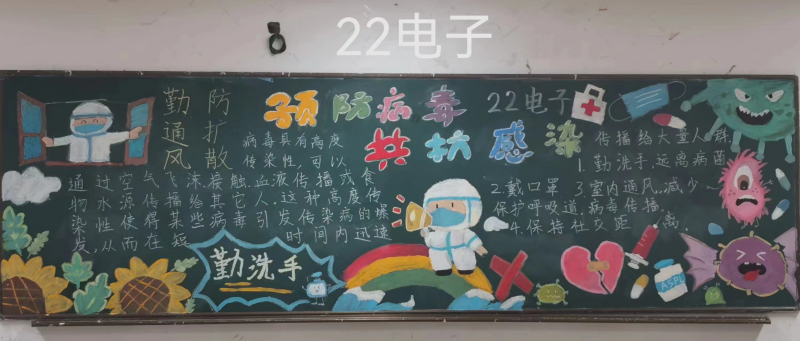 22电子
预防病毒
22电子
共抗感染
勤通风
防扩散
病毒具有高度
传染性,可以
通过空气飞沫.接触.血液传播或食
物水源传播给其它人.这种高度传
染性使得某些病毒引发传染病的爆
发,从而在短时间内迅速
传播给大量人群
1.勤洗手.远离病菌
2.戴口罩 3室内通风.减少
保护呼吸道.病毒传播.
4.保持社交距离.
勤洗手
ASPI